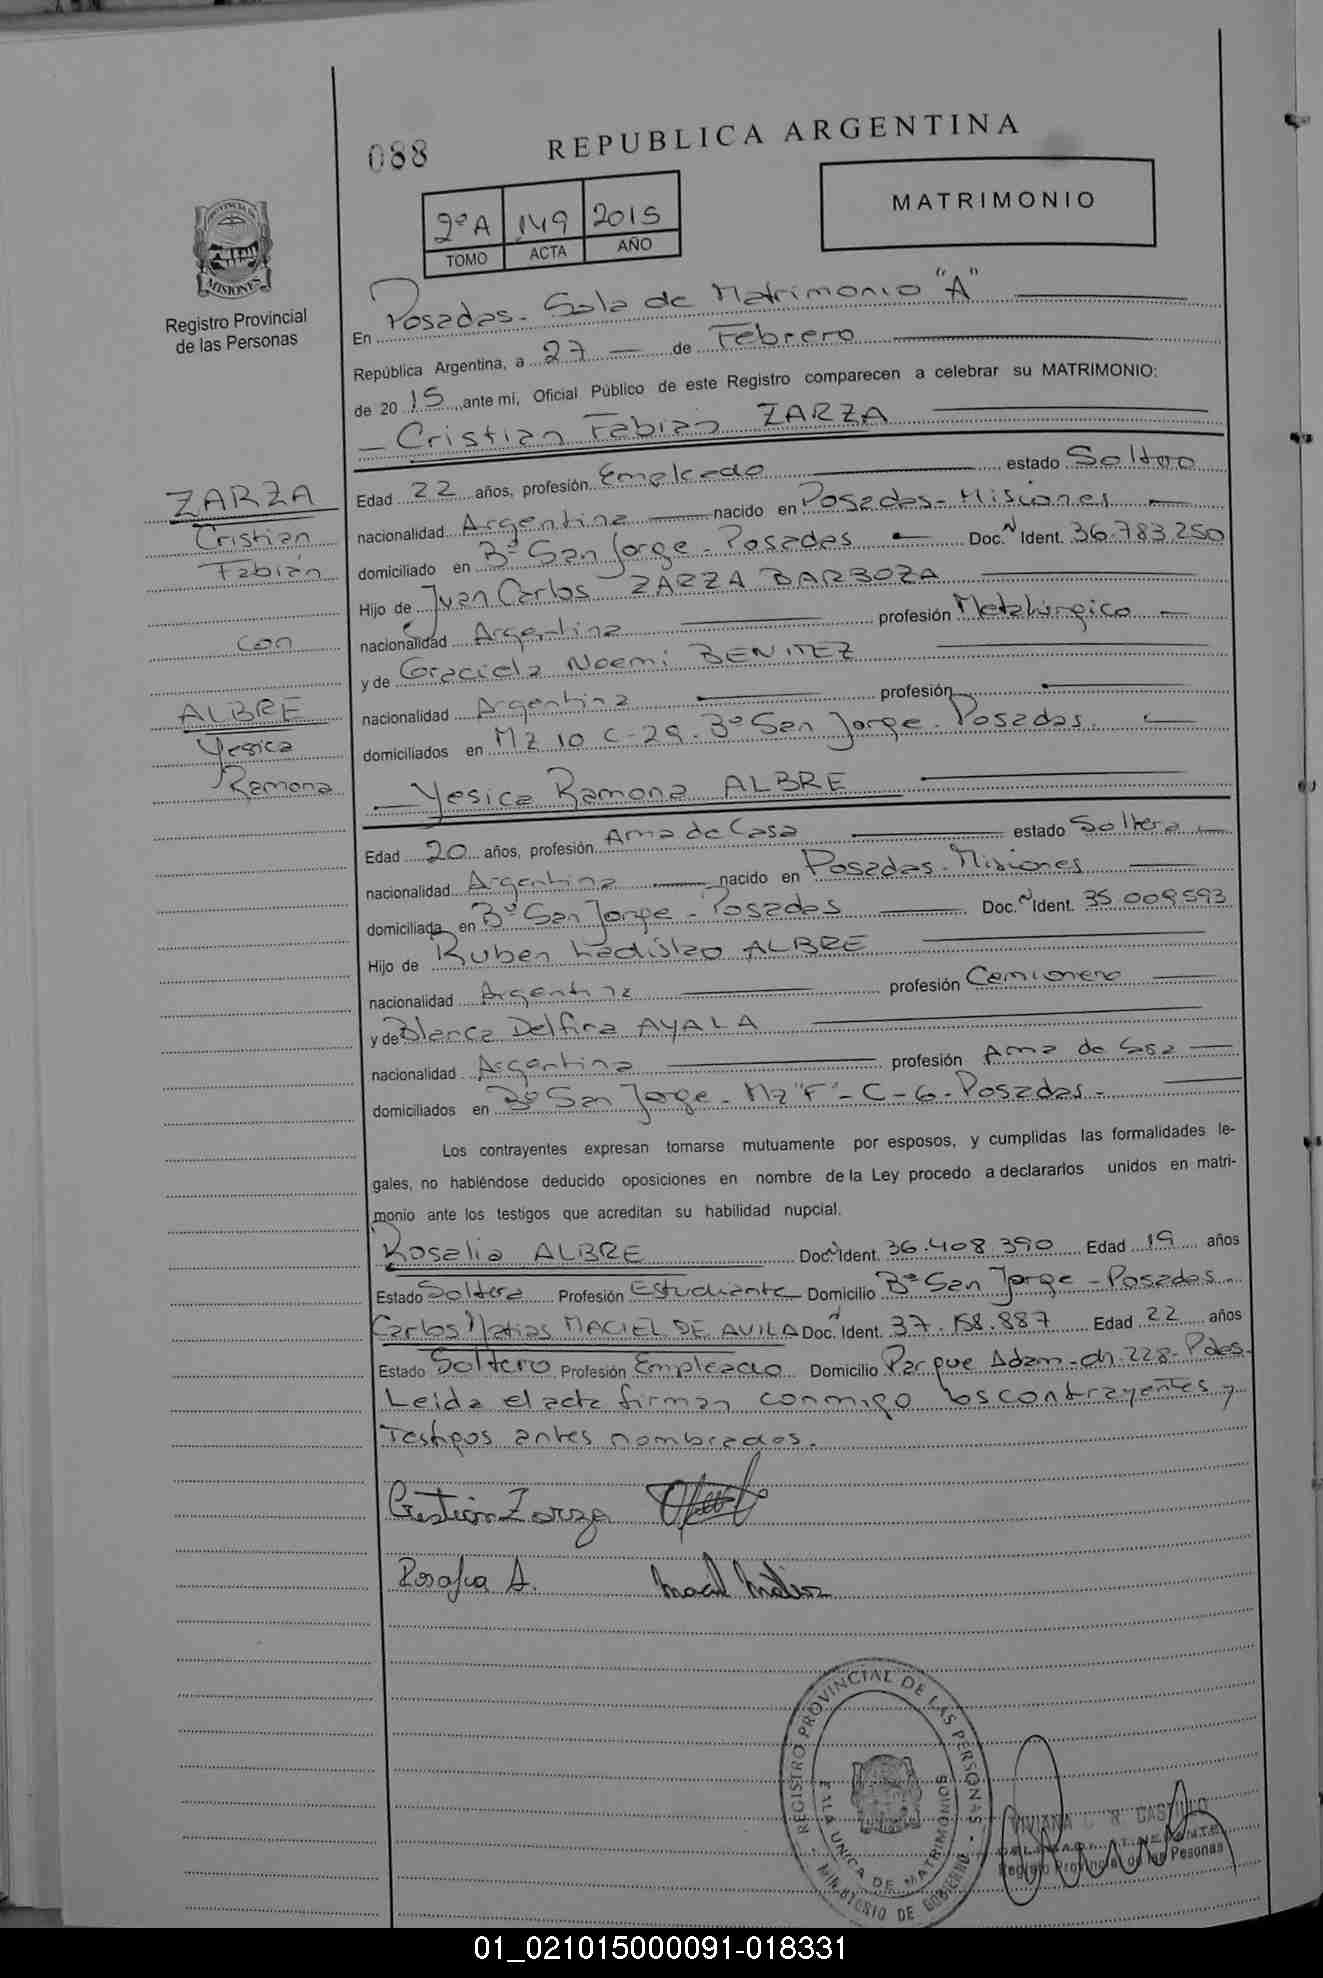 088
REPUBLICA ARGENTINA
2º A 149 2015
TOMO ACTA AÑO
MATRIMONIO
PROVINCIA DE
MISIONES
Registro Provincial
de las Personas
En Posadas - Sala de Matrimonio "A"
República Argentina, a 27 de Febrero
de 2015, ante mi, Oficial Público de este Registro comparecen a celebrar su MATRIMONIO:
Cristian Fabián ZARZA
ZARZA
Cristian
Fabián
con
ALBRE
Yesica
Ramona
Edad 22 años, profesión Empleado estado Soltero
nacionalidad Argentina nacido en Posadas - Misiones
domiciliado en Bº San Jorge - Posadas Doc. N Ident. 36.783.250
Hijo de Juan Carlos ZARZA BARBOZA
nacionalidad Argentina profesión Metalúrgico
y de Graciela Noemi BENITEZ
nacionalidad Argentina profesión
domiciliados en Mz 10 C-29 - Bº San Jorge - Posadas.
Yesica Ramona ALBRE
Edad 20 años, profesión Ama de Casa estado Soltera
nacionalidad Argentina nacido en Posadas - Misiones
domiciliada en Bº San Jorge - Posadas Doc. N Ident. 35.009.593
Hijo de Ruben Ladislao ALBRE
nacionalidad Argentina profesión Camionero
y de Blanca Delfina AYALA
nacionalidad Argentina profesión Ama de Casa
domiciliados en Bº San Jorge - Mz "F" - C - 6 - Posadas -
Los contrayentes expresan tomarse mutuamente por esposos, y cumplidas las formalidades le-
gales, no habiéndose deducido oposiciones en nombre de la Ley procedo a declararlos unidos en matri-
monio ante los testigos que acreditan su habilidad nupcial.
Rosalia ALBRE Doc. N Ident. 36.408.390 Edad 19 años
Estado Soltera Profesión Estudiante Domicilio Bº San Jorge - Posadas -
Carlos Matias MACIEL DE AVILA Doc. N Ident. 37.158.887 Edad 22 años
Estado Soltero Profesión Empleado Domicilio Parque Adam - ch. 228 - Pdas -
Leida el acta firman conmigo los contrayentes y
Testigos antes nombrados.
Cristian Zarza
Rosalia A. Maciel Matias
REGISTRO PROVINCIAL DE LAS PERSONAS
SALA UNICA DE MATRIMONIOS
MINISTERIO DE GOBIERNO
VIVIANA CASTILLO
Registro Provincial de las Pesonas
01_021015000091-018331